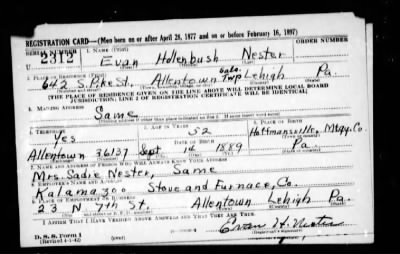 REGISTRATION CARD—(Men born on or after April 28, 1877 and on or before February 16, 1897)
SERIAL NUMBER 1. NAME (Print) ORDER NUMBER
U 2312 Evan Hollenbush Nester
2. PLACE OF RESIDENCE (Print)
642 S. Pike St. Allentown Lehigh Pa.
[THE PLACE OF RESIDENCE GIVEN ON THE LINE ABOVE WILL DETERMINE LOCAL BOARD
JURISDICTION; LINE 2 OF REGISTRATION CERTIFICATE WILL BE IDENTICAL]
3. MAILING ADDRESS
Same
[Mailing address if other than place indicated on line 2. If same insert word same]
4. TELEPHONE 5. AGE IN YEARS 6. PLACE OF BIRTH
Yes 52 Hoffmansville, Mtgy. Co.
DATE OF BIRTH
Allentown 36137 Sept 16 1889 Pa.
7. NAME AND ADDRESS OF PERSON WHO WILL ALWAYS KNOW YOUR ADDRESS
Mrs. Sadie Nester, Same
8. EMPLOYER'S NAME AND ADDRESS
Kalamazoo Stove and Furnace, Co.
9. PLACE OF EMPLOYMENT OR BUSINESS
23 N. 7th St, Allentown Lehigh Pa.
I AFFIRM THAT I HAVE VERIFIED ABOVE ANSWERS AND THAT THEY ARE TRUE.
D. S. S. Form 1 Evan H. Nester
(Revised 4-1-42)